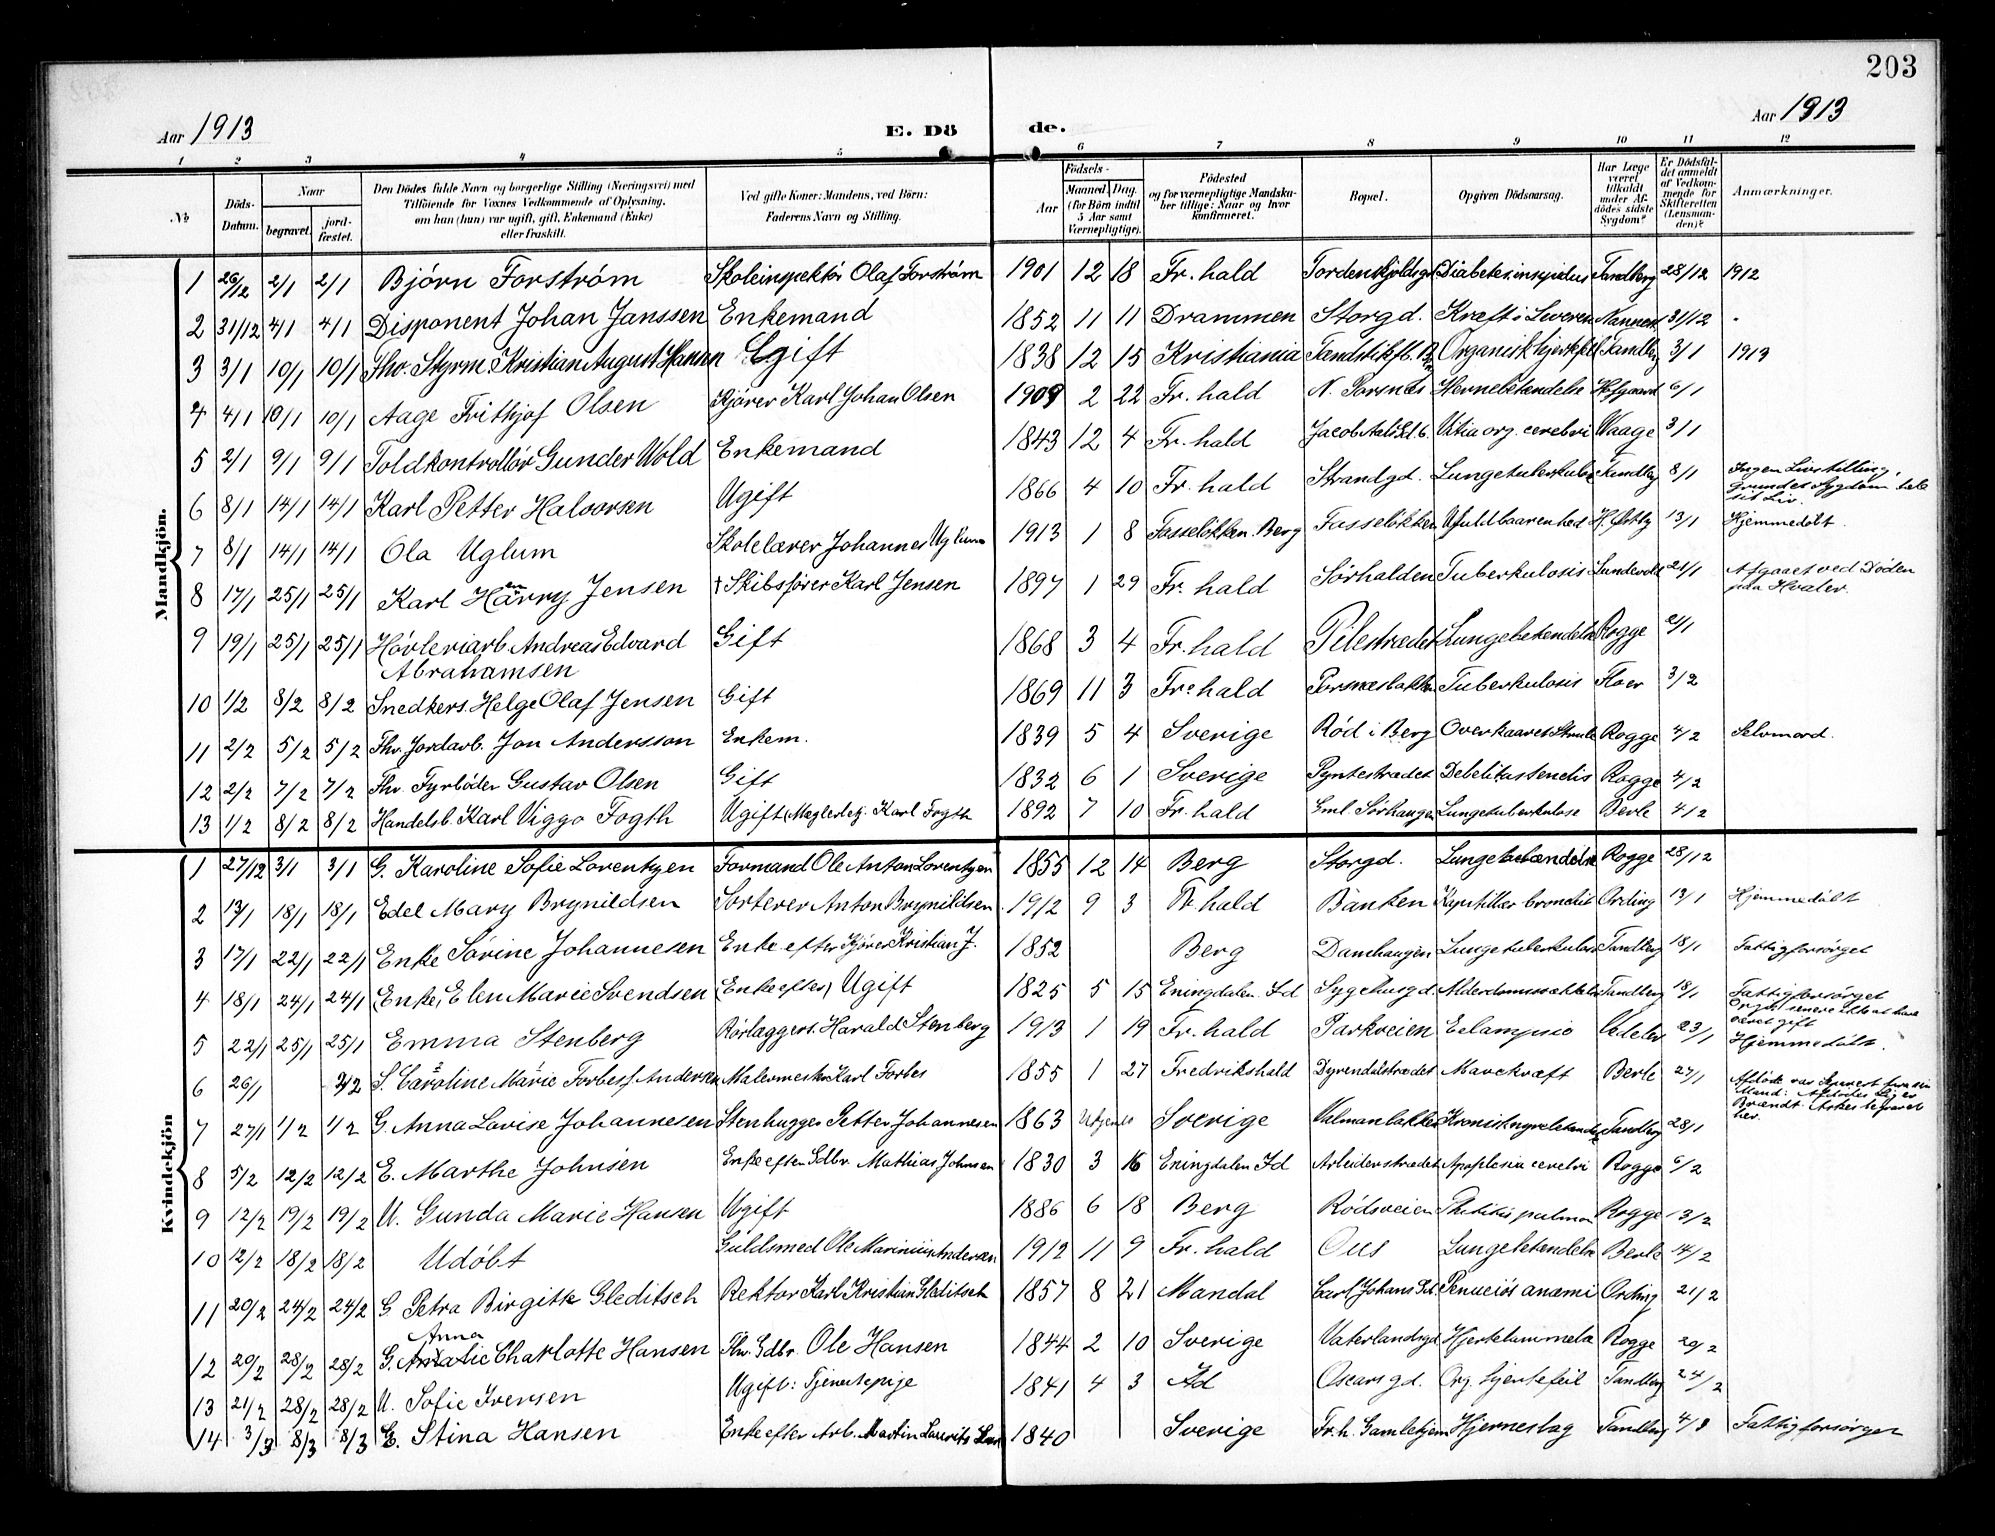 203
Aar 1913
E. Dö de.
Aar 1913
1 2 3 4 5 6 7 8 9 10 11 12
No
Döds-Datum.
Naar begravet. jord-fæstet.
Den Dödes fulde Navn og borgerlige Stilling (Næringsvei) med Tilföiende for Voxnes Vedkommende af Oplysning, om han (hun) var ugift, gift, Enkemand (Enke) eller fraskilt.
Ved gifte Koner: Mandens, ved Börn: Faderens Navn og Stilling.
Födsels- Aar Maaned. Dag. (for Börn indtil 5 Aar samt Værnepligtige).
Födested og for værnepligtige Mandskaber tillige: Naar og hvor konfirmeret.
Bopæl.
Opgiven Dödsaarsag.
Har Læge været tilkaldt under Afdödes sidste Sygdom?
Er Dödsfaldet anmeldt af Vedkommende for Skifteretten (Lensmanden)?
Anmærkninger.
Mandkjön.
1 26/12 2/1 2/1 Björn Forström Skoleinspektör Olaf Forström 1901 12 18 Fr. hald Tordenskjoldsgd Diabetes insipidus Tandberg 28/12 1912
2 31/12 4/1 4/1 Disponent Johan Janssen Enkemand 1852 11 11 Drammen Storgd. Kræft i Leveren Nannest 31/12 "
3 3/1 10/1 10/1 Fhv. Styrm. Kristian August Hansen Gift 1838 12 15 Kristiania Tandstikfb. Organisk hjertefeil Tandberg 3/1 1913
4 4/1 10/1 10/1 Aage Frithjof Olsen Kjörer Karl Johan Olsen 1909 2 22 Fr. hald N. Porsnes Hernebetændelse Hofgaard 6/1
5 2/1 9/1 9/1 Toldkontrollör Gunder Wold Enkemand 1843 12 4 Fr. hald Jacob Aals Vitia org. cerebri Waage 3/1
6 8/1 14/1 14/1 Karl Petter Halvorsen Ugift 1866 4 10 Fr. hald Strandgd. Lungetuberkulose Tandberg 8/1 Ingen Livsstilling, grundet Sygdom hele sit Liv.
7 8/1 14/1 14/1 Ola Uglum Skolelærer Johannes Uglum 1913 1 8 Fasselökken. Berg Fasselökken Ufuldbaarenhed H. Östby 13/1 Hjemmedöbt.
8 17/1 25/1 25/1 Karl Harry Jensen † Skibsförer Karl Jensen 1897 1 29 Fr. hald Sörhalden Tuberkulosis Lundevold 21/1 Afgaaet ved Döden paa Hvaler.
9 19/1 25/1 25/1 Hövleriarb. Andreas Edvard Abrahamsen Gift 1868 3 4 Fr. hald Pilestrædet Lungebetændelse Rogge 21/1
10 1/2 8/2 8/2 Snedkers. Helge Olaf Jensen Gift 1869 11 3 Fr. hald Porsnesbakken Tuberkulosis Floer 3/2
11 2/2 5/2 5/2 Fhv. Jordarb. Jon Andersson Enkem. 1839 5 4 Sverige Röd i Berg Overskaaret Strube Rogge 4/2 Selvmord.
12 2/2 7/2 7/2 Fhv. Fyrböder Gustav Olsen Gift 1832 6 1 Sverige Pyntestrædet Debelitas senilis Rogge 4/2
13 1/2 8/2 8/2 Handelsb. Karl Viggo Fogth Ugift (Mæglerbetj. Karl Fogth 1892 7 10 Fr. hald Gml. Sörhaugen Lungetuberkulose Berle 4/2
Kvindekjön
1 27/12 3/1 3/1 G. Karoline Sofie Lorentzen Formand Ole Anton Lorentzen 1855 12 14 Berg Storgd. Lungebetændelse Rogge 28/12
2 13/1 18/1 18/1 Edel Mary Brynildsen Sorterer Anton Brynildsen 1912 9 3 Fr. hald Banken Kapillær bronchit Ording 13/1 Hjemmedöbt
3 17/1 22/1 22/1 Enke Sorine Johannesen Enke efter Kjörer Kristian J. 1852 Berg Damhaugen Lungetuberkulose Tandberg 18/1 Fattigforsörget
4 18/1 24/1 24/1 (Enke) Elen Marie Svendsen (Enke efter) Ugift 1825 5 15 Eningdalen. Id Sygehusgd. Alderdomssvækkelse Tandberg 18/1 Fattigforsörget senere ikke at have været gift
5 22/1 25/1 25/1 Emma Stenberg Rörlæggers. Harald Stenberg 1913 1 19 Fr. hald Parkveien Eclampsia Vedeler 23/1 Hjemmedöbt.
6 26/1 3/2 S. Caroline Marie Forbes f. Andersen Malermester Karl Forbes 1855 1 27 Fredrikshald Dyrendalstrædet Mavekræft Berle 27/1 Afdöde var separert fra sin Mand: Afdödes Lig er Brændt. Asken begravet her.
7 27/1 1/2 1/2 G. Anna Lovise Johannesen Stenhugger Petter Johannesen 1863 Sverige Valmanbakken Kronisk nyrebetændelse Tandberg 28/1
8 5/2 12/2 12/2 E. Marthe Johnsen Enke efter Gdbr. Mathias Johnsen 1830 3 16 Eningdalen Id Arbeiderstrædet Apoplexia cerebri Rogge 6/2
9 12/2 19/2 19/2 U. Gunda Marie Hansen Ugift 1886 6 18 Berg Rödsveien Phtisis pulmon Rogge 13/2
10 12/2 18/2 18/2 Udöbt Guldsmed Ole Marinius Andersen 1912 11 9 Fr. hald Ous Lungebetændelse Berle 14/2
11 20/2 24/2 24/2 G Petra Birgitte Gleditsch Rektor Karl Kristian Gleditsch 1857 8 21 Mandal Carl Johans Gd. Pernuciös anæmi Ording 21/2
12 20/2 28/2 28/2 G. Anna Charlotte Hansen Fhv. Gdbr. Ole Hansen 1844 2 10 Sverige Vaterlandsgd Hjertelammelse Rogge 20/2
13 21/2 28/2 28/2 U. Sofie Iversen Ugift: Tjenestepige 1841 4 3 Id Oscarsgd. Org. hjertefeil Tandberg 24/2
14 3/3 8/3 8/3 E. Stina Hansen Enke efter Arb. Martin Laurits 1840 Sverige Fr. h. Gamlehjem Hjerneslag Tandberg 4/3 Fattigforsörget